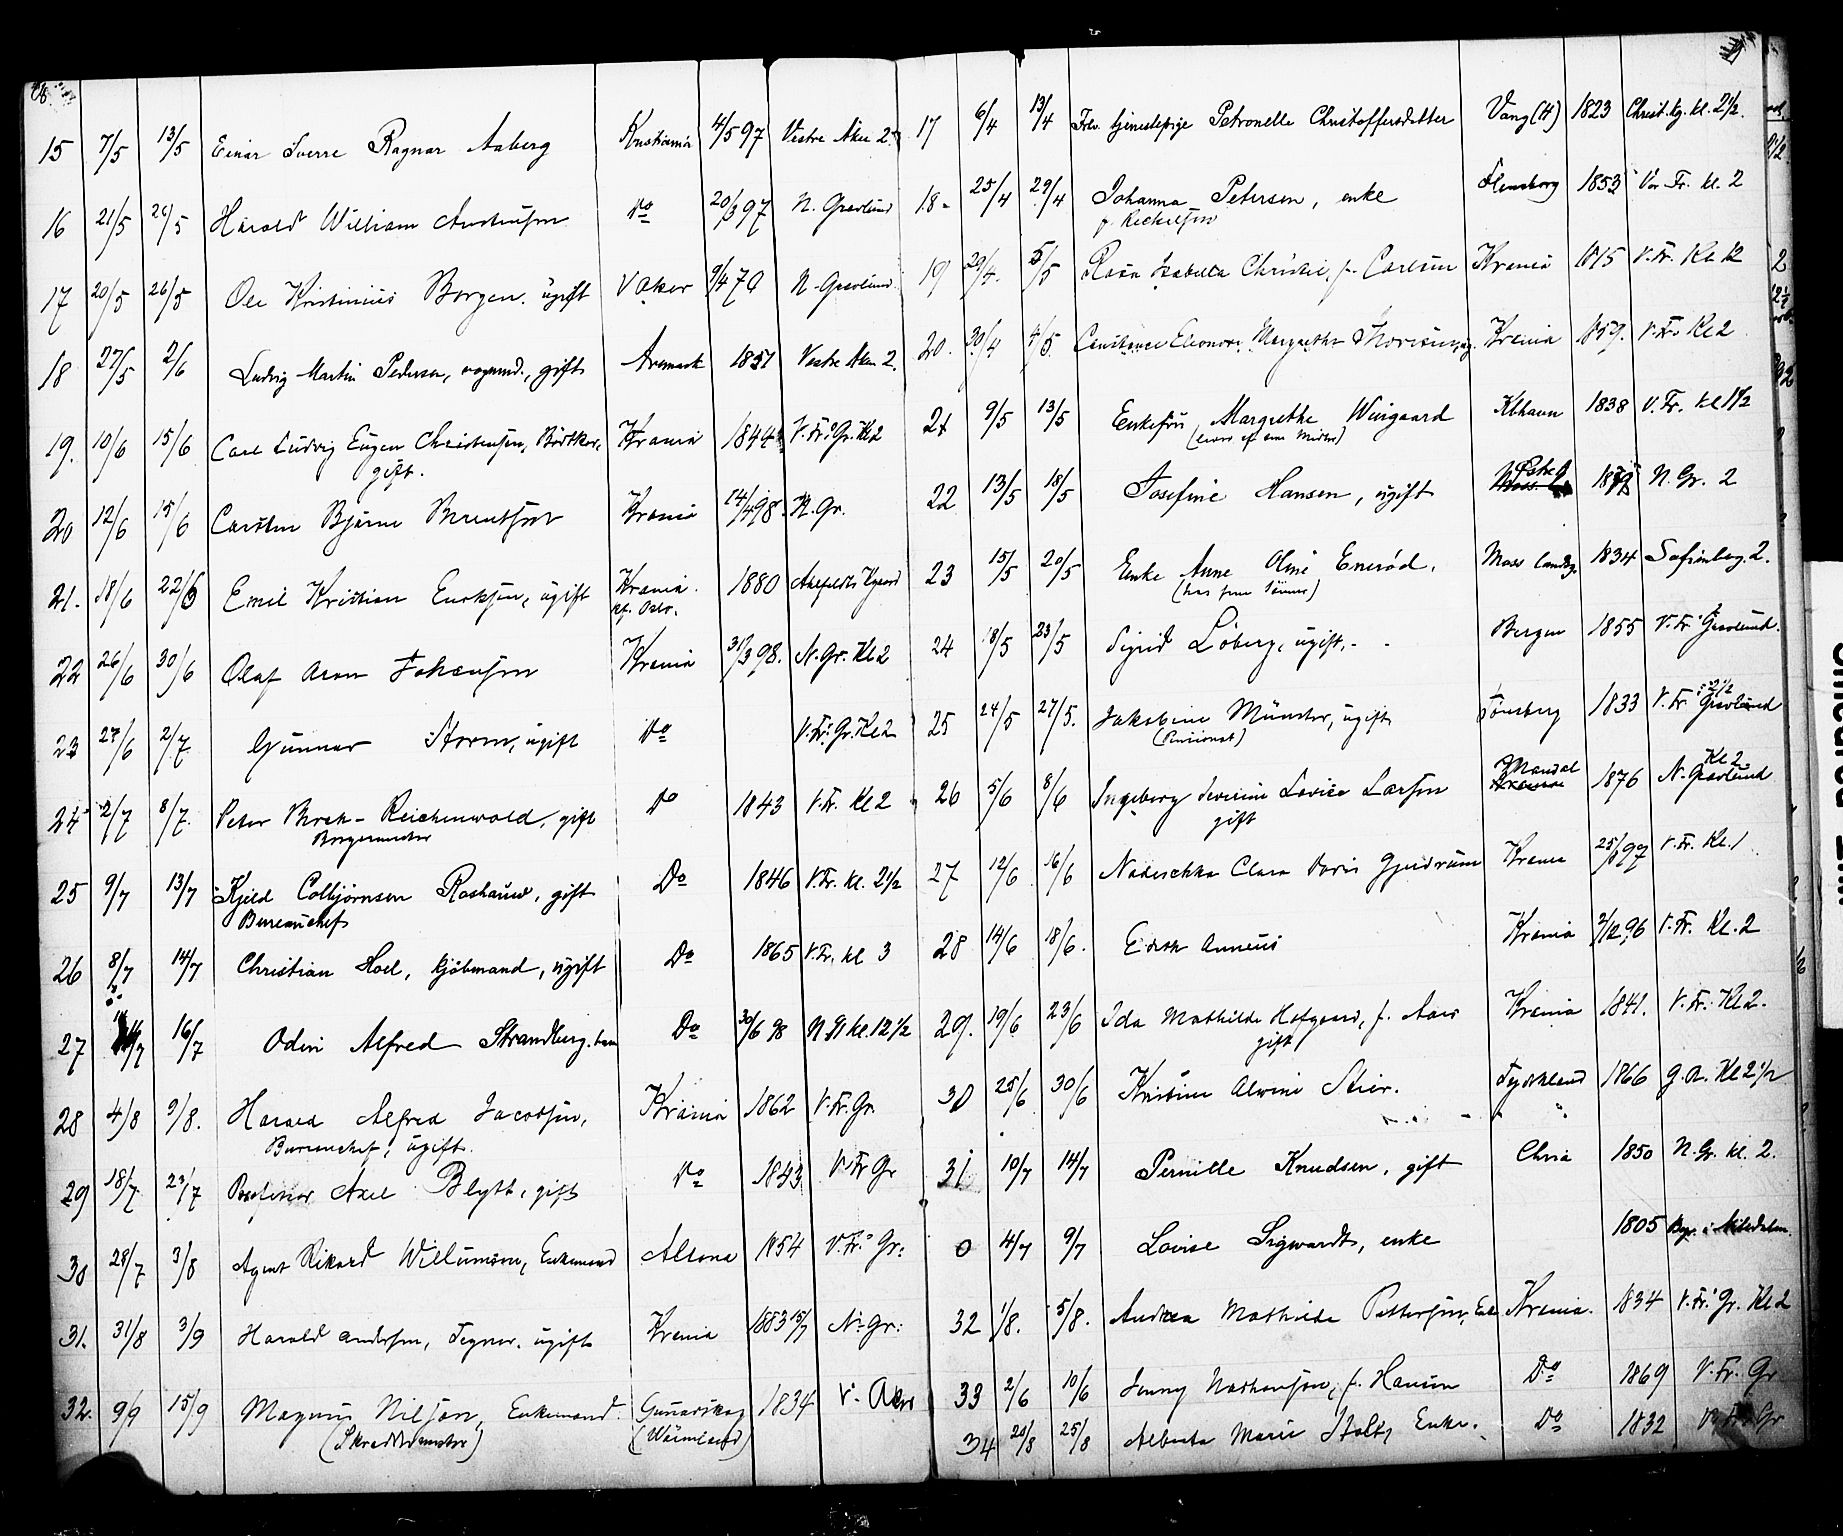 15 7/5 13/5 Einar Sverre Ragnar Aaberg Kristiania 4/5 97 Vestre Aker 2
16 21/5 26/5 Harald William D° 20/3 97 N. Gravlund
17 20/5 26/5 Ole Kristinius Borgen. ugift V Aker 9/4 70 N. Gravlund
18 27/5 2/6 Ludvig Martin Pedersen, vognmd., gift Aremark 1851 Vestre Aker 2.
19. 10/6 15/6 Carl Ludvig Eugen Christensen, Bödker, Krania 1844 V. Fr. Gr. Kl 2
gift.
20 12/6 15/6 Carsten Bjarne Berentsen Krania 14/4 98. N. Gr.
21. 18/6 22/6 Emil Kristian Eriksen, ugift Krania. 1880
kf. Oslo.
22 26/6 30/6 Olaf Aron Johansen Krania 31/3 98. N. Gr. Kl 2
23 27/6 2/7 Gunnar Storm, ugift D° V. Fr. Gr. Kl 2
24 2/7 8/7 Peter Broch Reichenwald, gift D° 1843 V. Fr. Kl 2
Borgermester
25 9/7 13/7 Kjeld Colbjörnsen Roshauw, gift D° 1846 V. Fr. kl. 2 1/2
Bureauchef
26 8/7 14/7 Christian Hoel, kjöbmand, ugift D° 1865 V. Fr. kl 3
27 14/7 16/7 Odin Alfred Strandberg. barn D° 30/6 98 N Gr kl. 12 1/2
28 4/8 9/8. Harald Alfred Jacobsen, Krania 1862 V. Fr. Gr.
Bureauchef, ugift.
29 18/7 23/7 Professor Axel Blytt, gift D° 1843 V. Fr Gr
30 28/7 3/8 Agent Rikard Willumsen, Enkemand Altona 1854 V. Fr. Gr.
31. 31/8 3/9 Harald Andersen, Tegner. ugift Krania 1883 15/7 N. Gr.
32. 9/9 15/9 Magnus Nilson, Enkemand Gunnarskog 1834 V. Aker
(Skreddermester) (Wärmland)
17 6/4 13/4 Frv. tjenestepige Petronelle Christoffersdatter Vang (H) 1823 Christ. Kg. kl. 2 1/2.
18. 25/4 29/4 Johanna Petersen, enke Flensborg 1853 Vor Fr. kl. 2
19 29/4. 5/5 Rosa Isabella Christie, f. Carlsen Krania 1815 V. Fr. Kl 12
20. 30/4 4/5. Constance Eleonore Margrethe Thoresen, ug. Krania 1859. V. Fr. Kl 2
21 9/5 13/5 Enkefru Margrethe Wiingaard Kbhavn 1838 V. Fr. kl 1 1/2
22 13/5 18/5 Josefine Hansen, ugift N. Gr. 2
23 15/5 20/5 Enke Anne Oline Enerød. Moss landsg. 1834 Sofienberg. 2.
(har fem sönner)
24 18/5 23/5 Sigrid Löberg, ugift. Bergen 1855 V. Fr. Gravlund.
25 24/5 27/5. Jakobine Münster, ugift Tönsberg 1833 V. Fr Gravlund 2 1/2
(Pensionat)
26 5/6 8/6 Ingeborg Severine Lovise Larsen Mandal 1876 N. Gravlund Kl 2
gift
27 12/6 16/6 Nadeschka Clara Doris Gjerdrum Krania 25/8 97 V. Fr. Kl. 1
28 14/6 18/6. Edith Anneus Krania 2/12 96 V. Fr. Kl. 2
29. 19/6 23/6 Ida Mathilde Hofgaard, f. Aars Krania 1841. V. Fr. Kl 2.
gift
30 25/6 30/6 Kristine Alvine Stier. Tydskland 1866 G. A. Kl 2 1/2
31 10/7 14/7 Pernille Knudsen, gift Chria 1850 N. Gr. kl. 2.
0 4/7 9/7 Lovise Sigwardt, enke 1805 Begr. i Nitedalen
32 1/8. 5/8. Andrea Mathilde Pettersen, Enk Krania. 1834 V. Fr. Gr. Kl 2
33 2/6 10/6 Jenny Nathansen, f. Hansen D° 1869 V. Fr. Gr
34 20/8 25/8 Alberta Marie Stoltz Enke. D° 1832 V. Fr. Gr